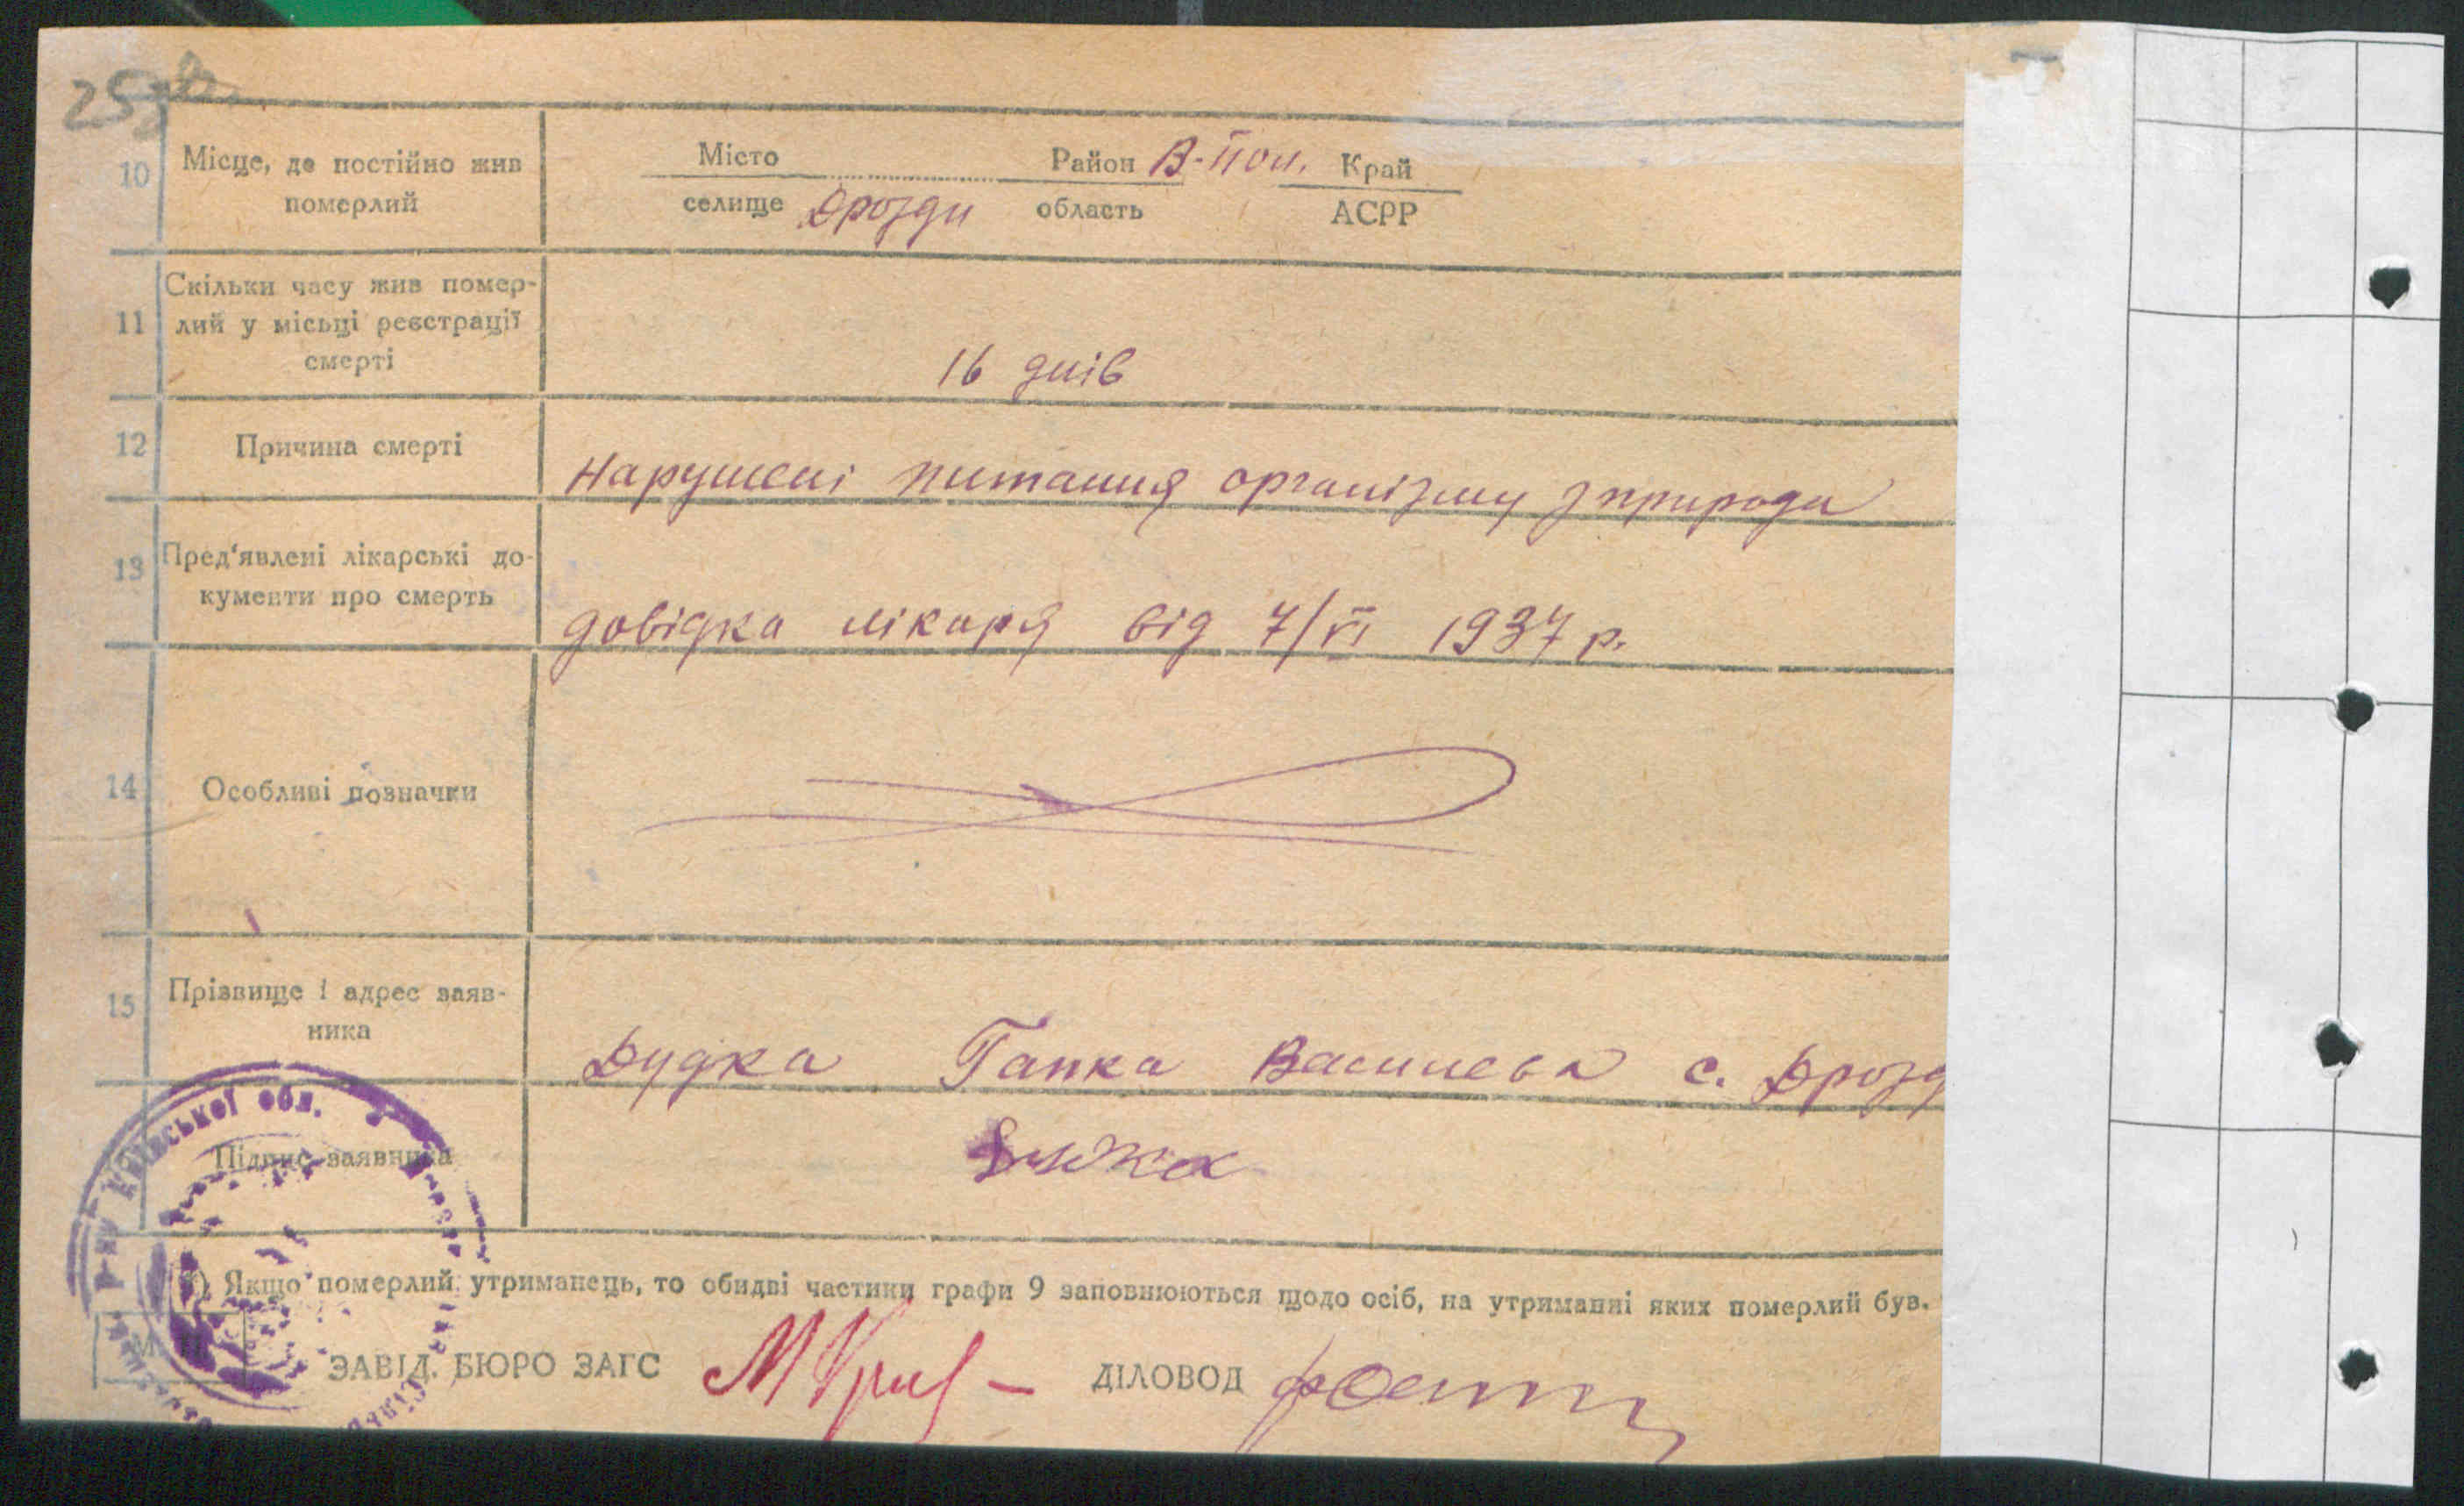 25зв
10 Місце, де постійно жив померлий
Місто Район В-Пол. Край
селище Дрозди область АСРР
11 Скільки часу жив помер-
лий у місьці реєстрації
смерті
16 днів
12 Причина смерті
Нарушені питання організму з природи
13 Пред'явлені лікарські до-
кументи про смерть
довідка лікаря від 7/VI 1937 р.
14 Особливі позначки
15 Прізвище і адрес заяв-
ника
Дудка Гапка Васильева с. Дрозд
Підпис заявника
*) Якщо померлий утриманець, то обидві частини графи 9 заповнюються щодо осіб, на утриманні яких померлий був.
М. П.
ЗАВІД. БЮРО ЗАГС ДІЛОВОД
Київської обл.